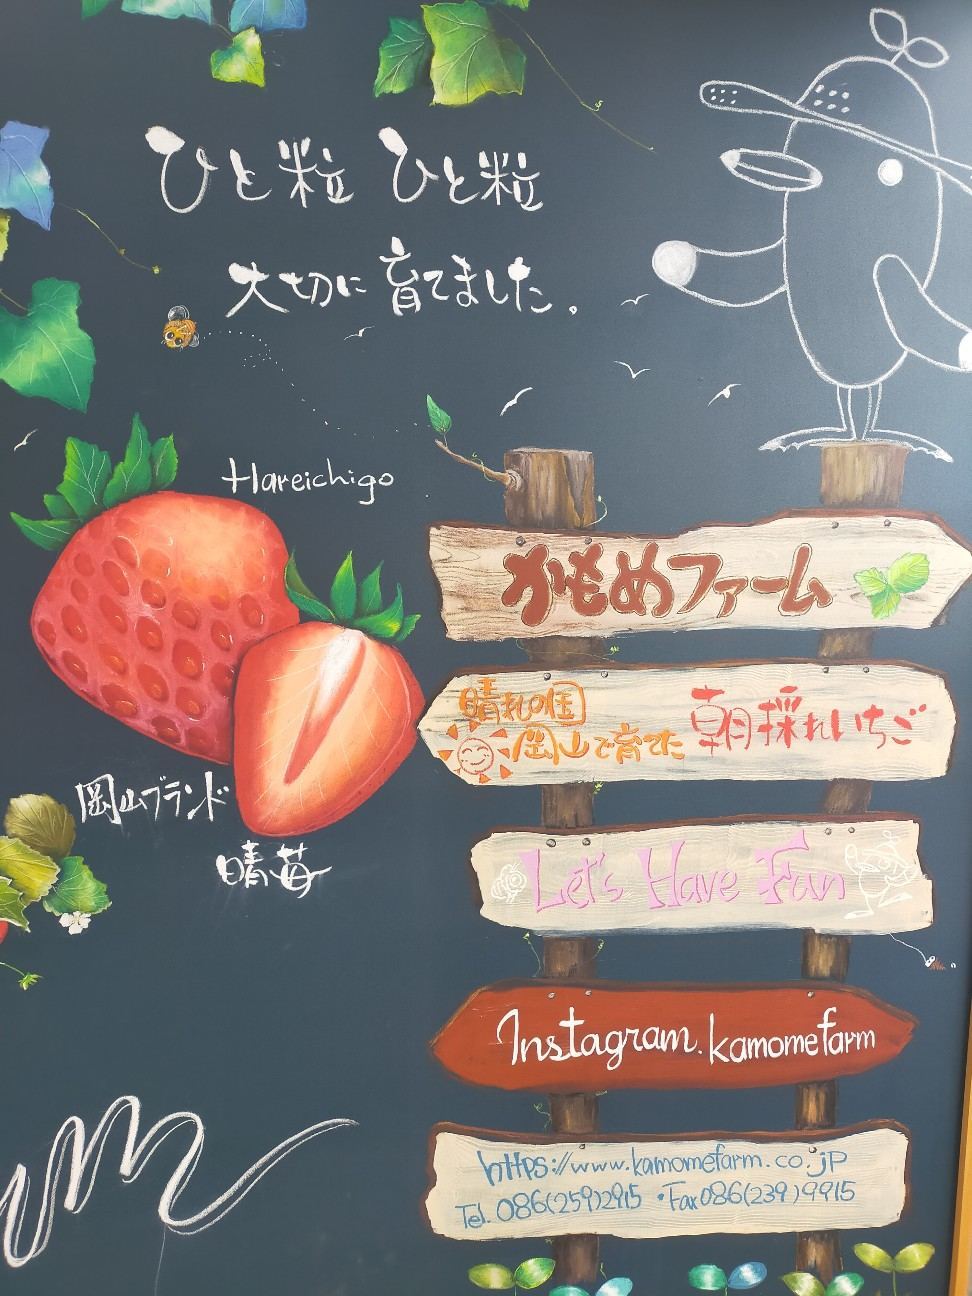 ひと粒 ひと粒
大切に 育てました。
Hareichigo
岡山ブランド
晴苺
かもめファーム
晴れの国
岡山で育てた 朝採れいちご
Let's Have Fun
Instagram. kamomefarm
https://www.kamomefarm.co.jp
Tel. 086(259)2915 ・Fax 086(239)9915